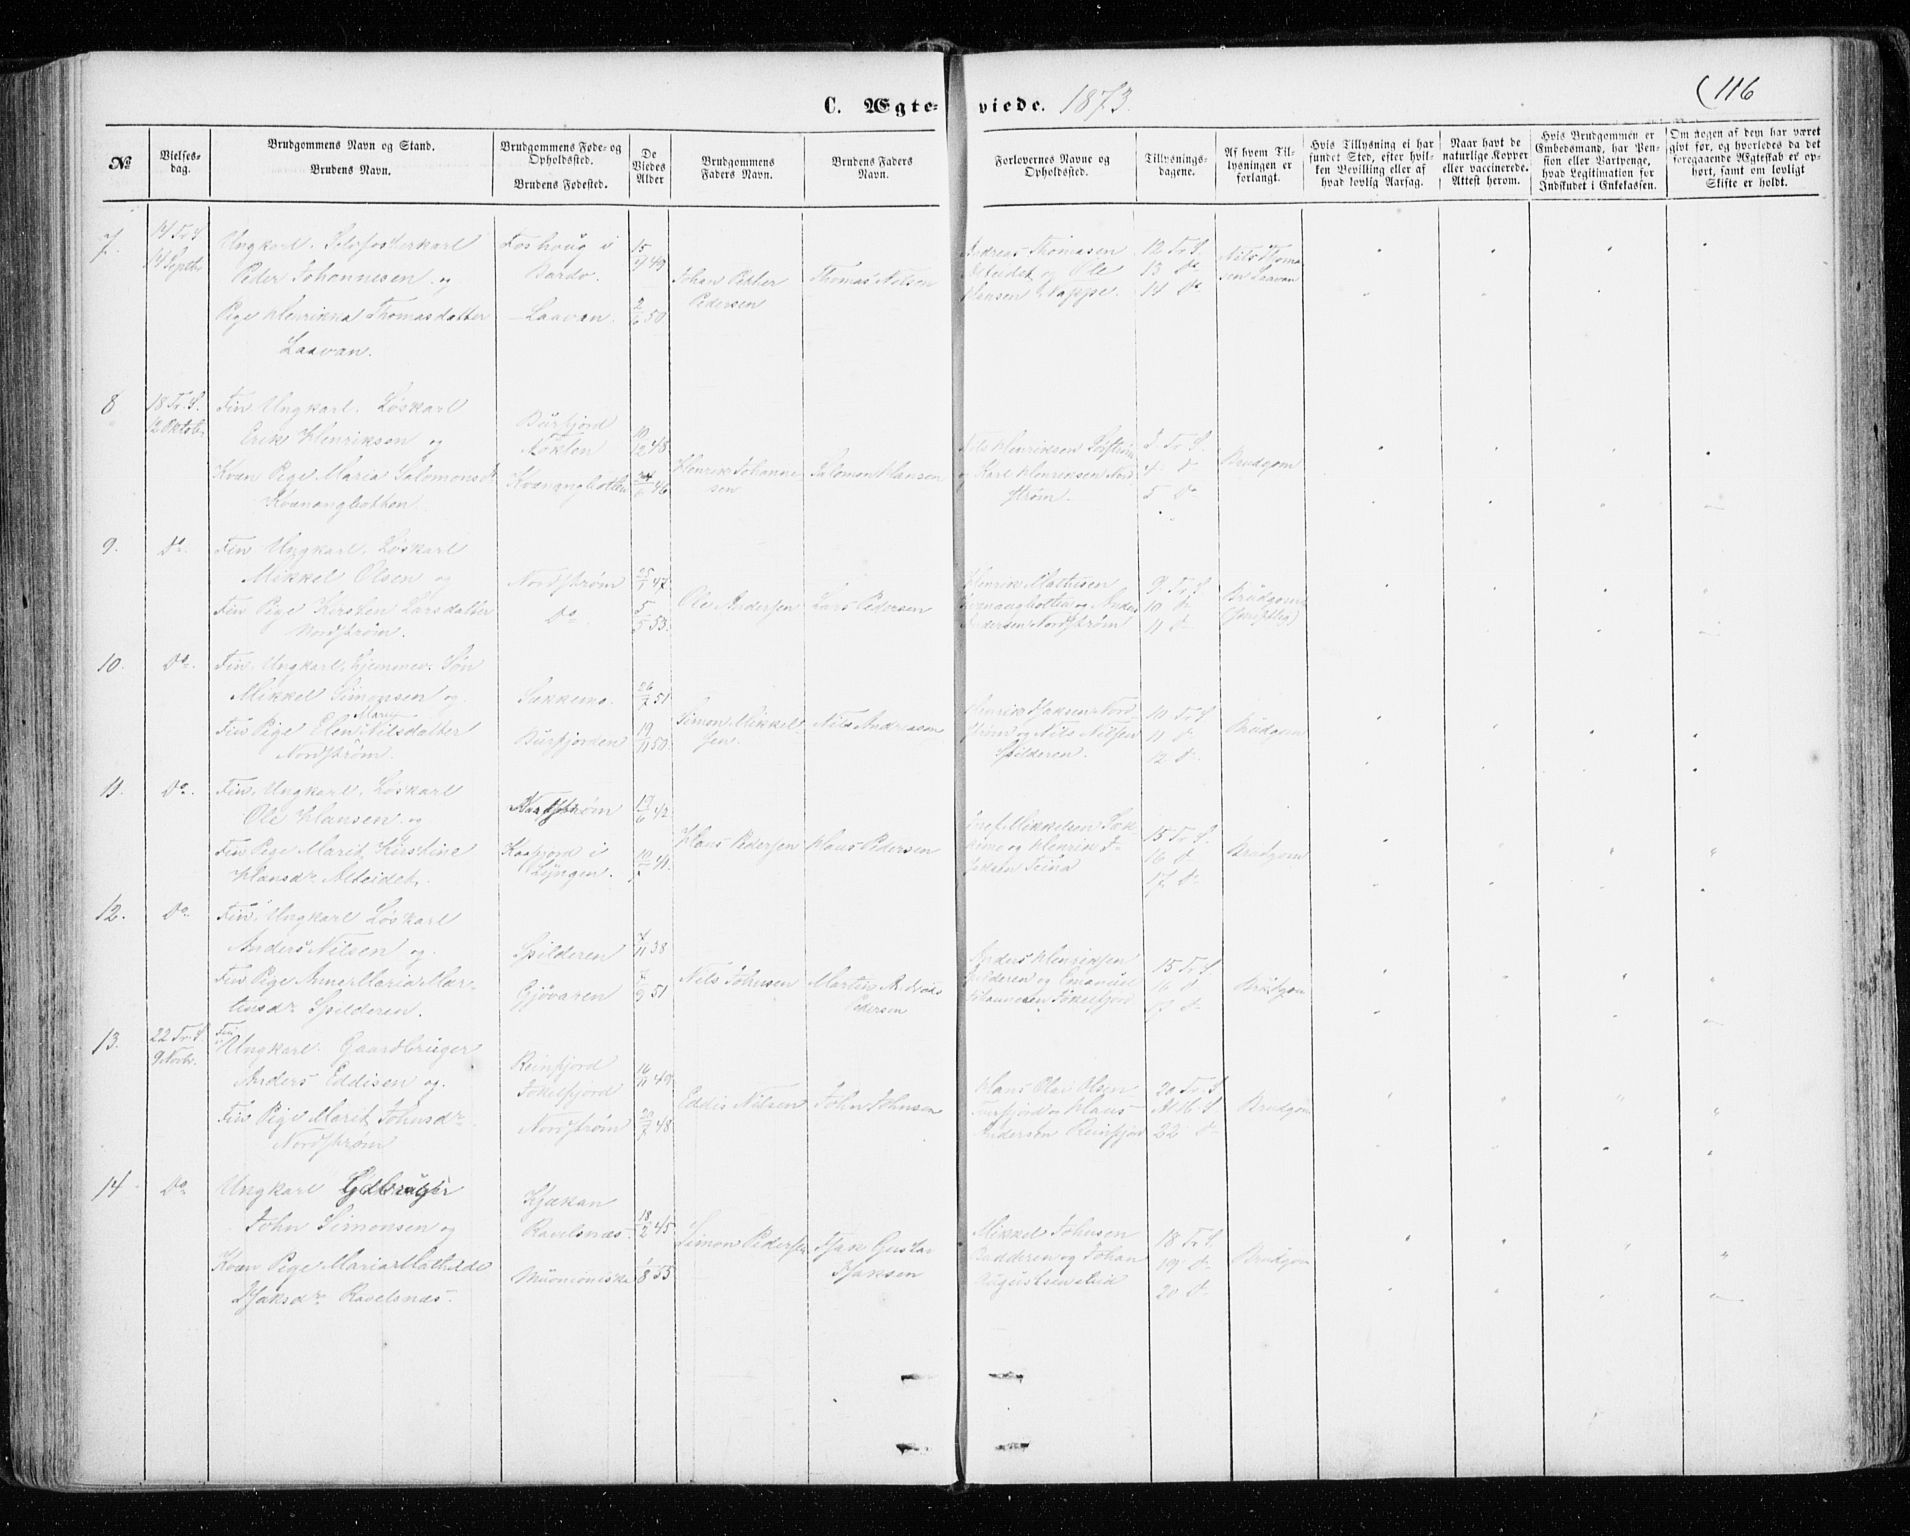 C. Ægteviede. 1873. 116
№
Vielsesdag.
Brudgommens Navn og Stand.
Brudens Navn.
Brudgommens Føde- og Opholdssted.
Brudens Fødested.
De Viedes Alder
Brudgommens Faders Navn.
Brudens Faders Navn.
Forlovernes Navne og Opholdsted.
Tillysningsdagene.
Af hvem Tillysningen er forlangt.
Hvis Tillysning ei har fundet Sted, efter hvilken Bevilling eller af hvad lovlig Aarsag.
Naar havt de naturlige Kopper eller vaccinerede. Attest herom.
Hvis Brudgommen er Embedsmand, har Pension eller Vartpenge, hvad Legitimation for Indskudet i Enkekassen.
Om nogen af dem har været givt før, og hvorledes da det foregaaende Ægteskab er ophørt, samt om lovligt Skifte er holdt.
7. 14 Tr S 14 Septbr
Ungkarl.
Peder Johannesen og
Pige Henrikka Thomasdatter
Laavan.
Foshoug i
Bardo.
Laavan.
15/9 49
2/6 50
Johan Petter
Pedersen
Thomas Nilsen
Andreas Thomasen
Alteidet og Ole
Hansen
12 Tr S.
13 Do
14 Do
Nils Thoma
sen Laavan
8 18 Tr. S. 12 Oktob.
Fin. Ungkarl. Løskarl
Erik Henriksen og
Kvæn Pige Maria Salomonsdr
Kvænangbotten
Burfjord
Kvænangbotten
10/12 48
46
Henrik Johanne
sen
Salomon Hansen
Nils Henriksen
og Karl Henriksen Nord
strøm.
3 Tr S.
4 D
5 Do
Brudgom
9. Do.
Fin Ungkarl. Løskarl
Mikkel Olsen og
Fin Pige Kirsten Larsdatter
Nordstrøm.
Nordstrøm
Do
25/1 47
5/5 53
Ole Andersen
Lars Pedersen
Henrik Mathisen
Kvænangbotten og Anders
Andersen Nordstrøm
9 Tr S
10 D
11 D
Brudgom
(skriftlig)
10. Do.
Fin. Ungkarl. hjemmev. Søn
Mikkel Simonsen og
Fin Pige Elen Marie Nilsdatter
Nordstrøm.
Sækkemo.
Burfjorden
26/2 51
19/11 50
Simon Mikkel
sen.
Nils Andreasen
Henrik Isaksen Nord
strøm og Nils Nilsen
Spilderen.
10 Tr S
11 D
12 D
Brudgom
11. Do.
Fin. Ungkarl. Løskarl
Ole Hansen og
Fin Pige Marit Kirstine
Hansdr Alteidet.
Nordstrøm
Kaafjord i
Lyngen.
19/6 42
Hans Pedersen
Hans Pedersen
15 Tr S.
16 D
17 D
Brudgom
12. Do
Fin. Ungkarl Løskarl
Anders Nilsen og
Fin Pige Anne Maria Mar-
tinsdr Spilderen.
Spilderen
Gjøvaren
7/11 38
7/9 51
Nils Johnsen
Martin Andreas
Pedersen
Anders Henriksen
Spilderen og Emanuel
Johannesen Jøkelfjord
15 Tr S
16 D
17 D
Brudgom
13. 22 Tr S 9 Novbr.
Fin Ungkarl. Gaardbruger
Anders Eddisen og
Fin Pige Marit Johnsdr
Nordstrøm
Reinfjord
Jøkelfjord
Nordstrøm
16/11 49
20/7 48
Eddis Nilsen
John Johnsen
Hans Olai Olsen
og Hans
Andersen Reinfjord
20 Tr S
22 D
Brudgom
14 Do
Ungkarl Gdbruger
John Simonsen og
Kvæn Pige Maria Mathilde
Isaksdr Ravelsnæs.
Kjækan
Ravelsnæs.
Muonioniska
18/2 45
Simon Pedersen
Isak Gustav
Isaksen
Mikkel Johnsen
Badderen og Johan
Augustsen
18 Tr S
19 D
20 D
Brudgom